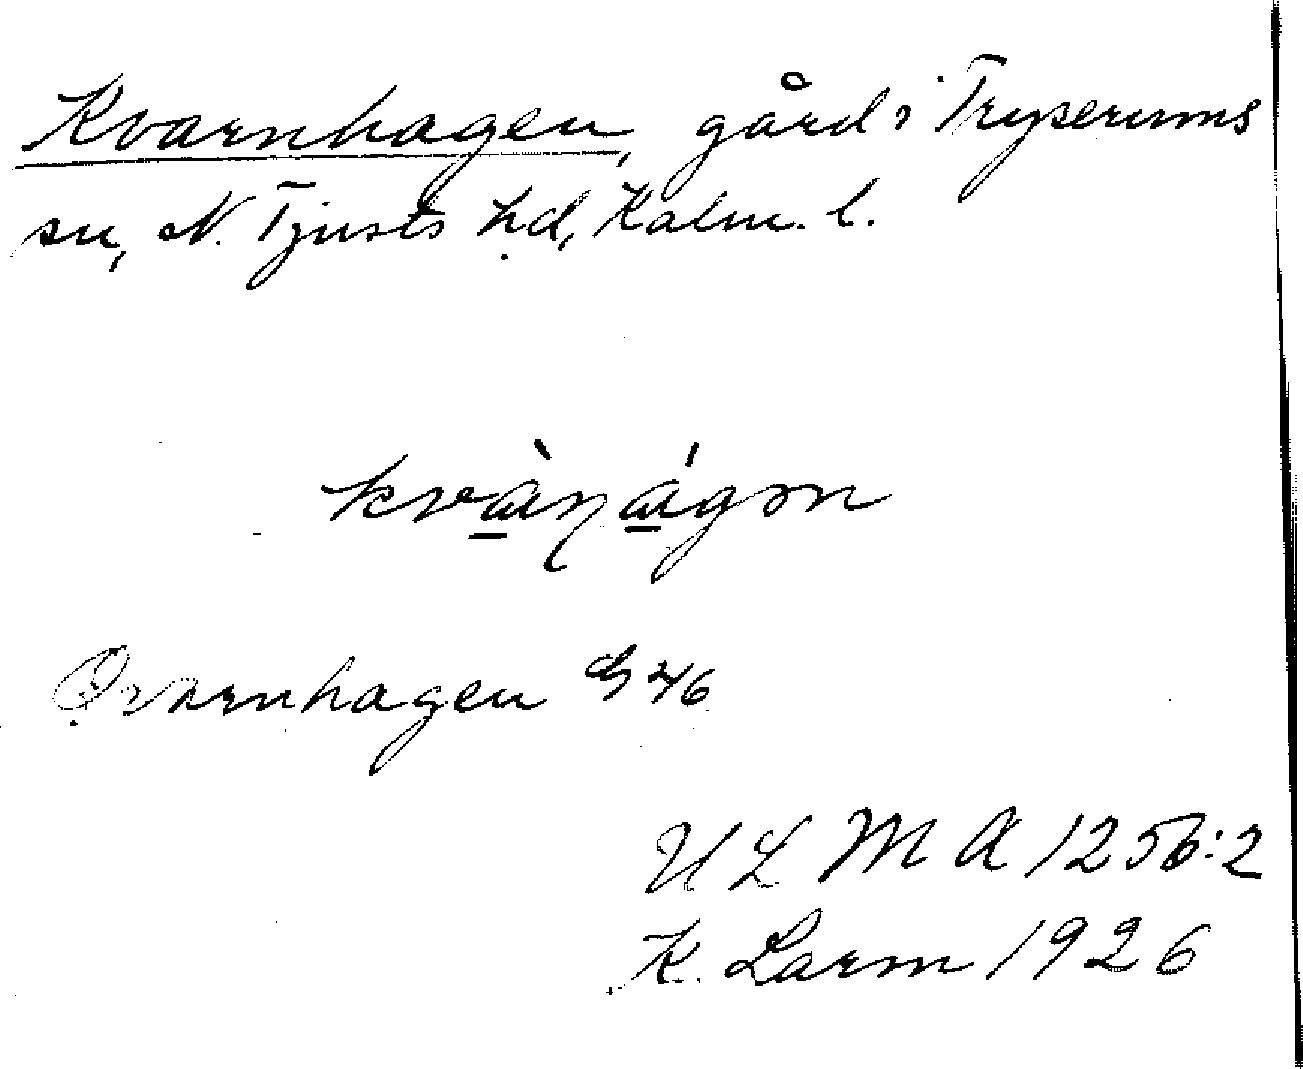 Kvarnhagen, gård i Tryserums
sn, N. Tjusts hd, Kalm. l.
kvàɳágən
Qvarnhagen G 46
U L M A 1256:2
K. Larm 1926